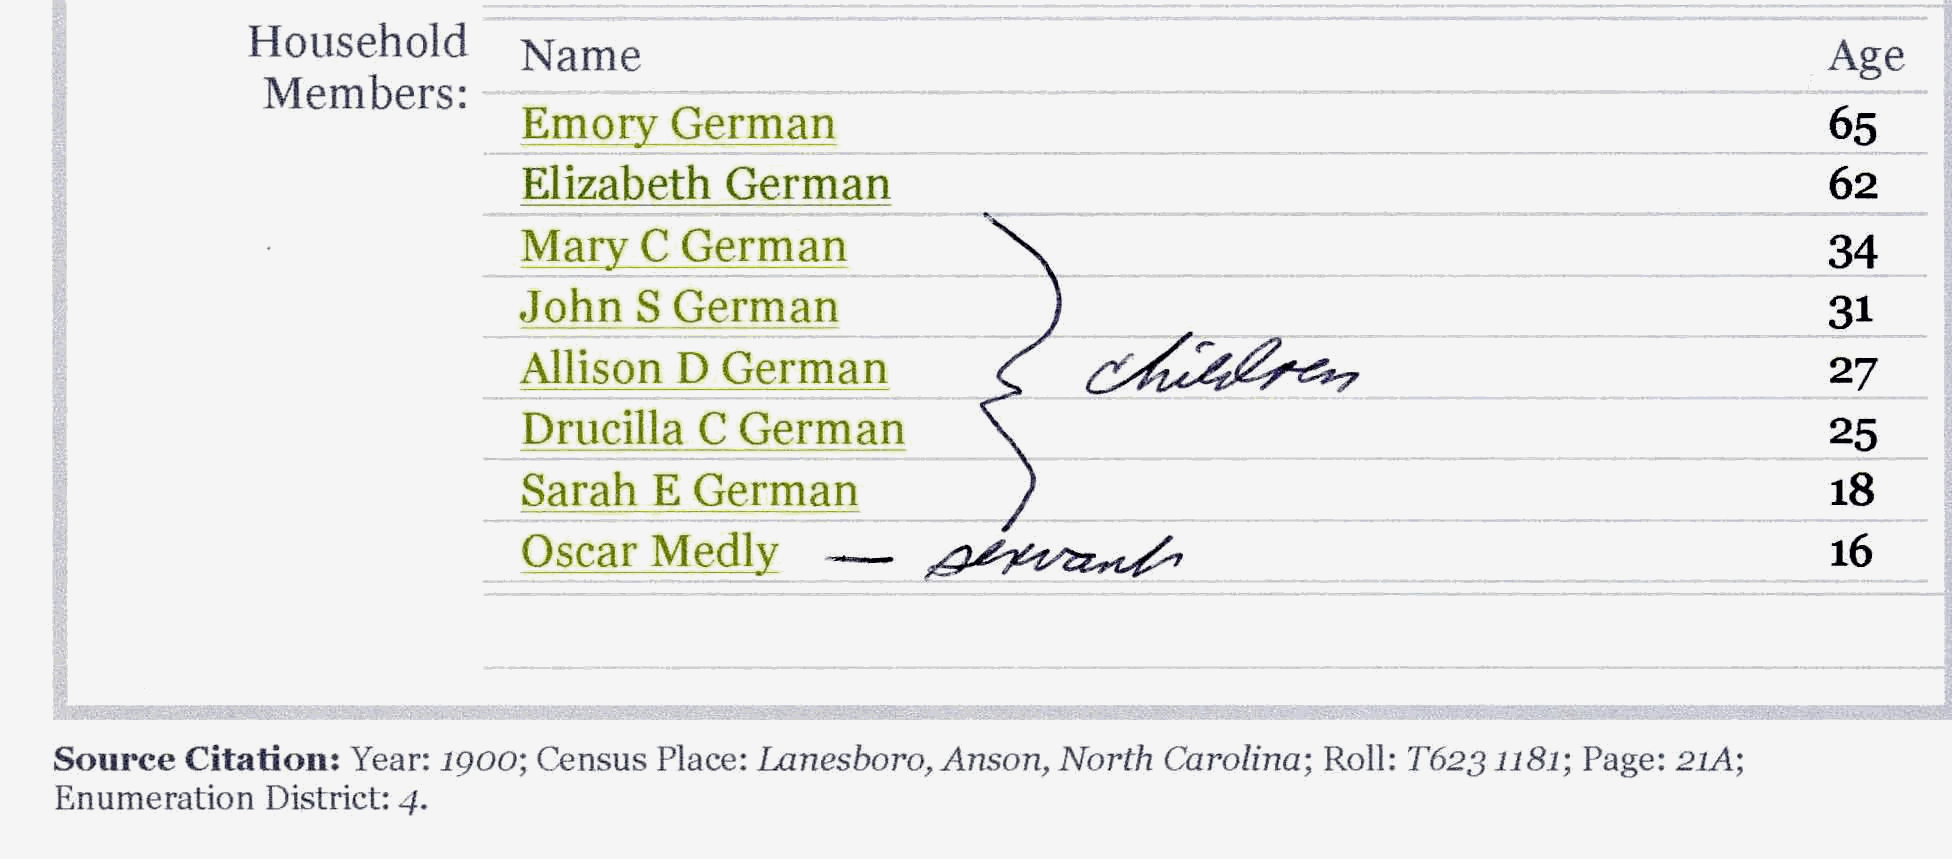 Household Members:
Name Age
Emory German 65
Elizabeth German 62
Mary C German 34
John S German 31
Allison D German 27
children
Drucilla C German 25
Sarah E German 18
Oscar Medly — servant 16
Source Citation: Year: 1900; Census Place: Lanesboro, Anson, North Carolina; Roll: T623 1181; Page: 21A;
Enumeration District: 4.